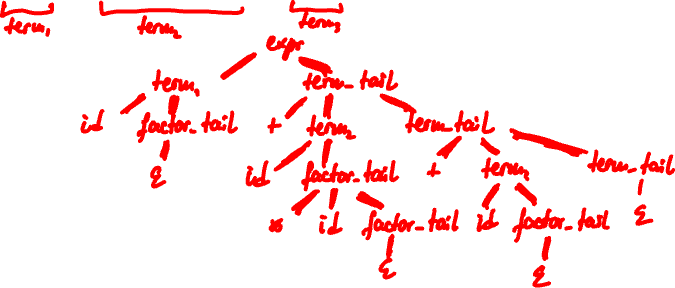 term₁ term₂ term₃
expr
term₁ term_tail
id factor_tail + term₂ term_tail
ε id factor_tail + term₃ term_tail
* id factor_tail id factor_tail ε
ε ε